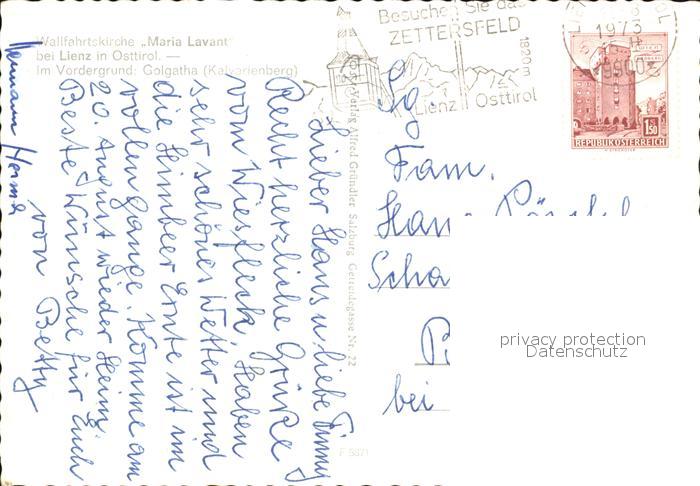 Wallfahrtskirche „Maria Lavant"
bei Lienz in Osttirol. —
Im Vordergrund: Golgatha (Kalvarienberg)
Besuchen Sie das
ZETTERSFELD
1820m
Lienz Osttirol
1973
9900
1.50
REPUBLIK ÖSTERREICH
Verlag Alfred Gründler Salzburg Getreidegasse Nr. 22
Lieber Hans u. liebe Finny
Recht herzliche Grüße
vom Wiesfleck. Haben
sehr schönes Wetter und
die Himbeer Ernte ist im
vollen Gange. Komme am
20. August wieder Heim.
Beste Wünsche für Euch
von Betty
Hermann
Fam.
Han
Scha
P.
bei
privacy protection
Datenschutz